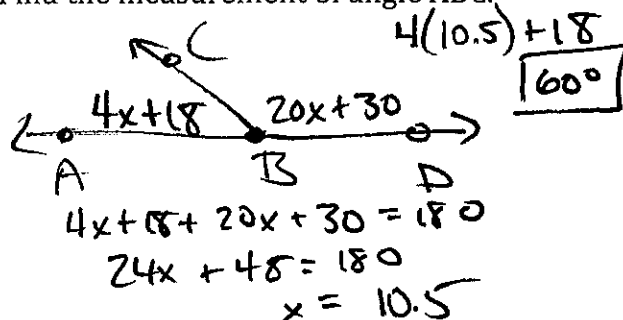 Find the measurement of angle ABC.
4(10.5)+18
60°
C
4x+18 20x+30
A B D
4x+18+ 20x+30 = 180
24x + 48 = 180
x = 10.5